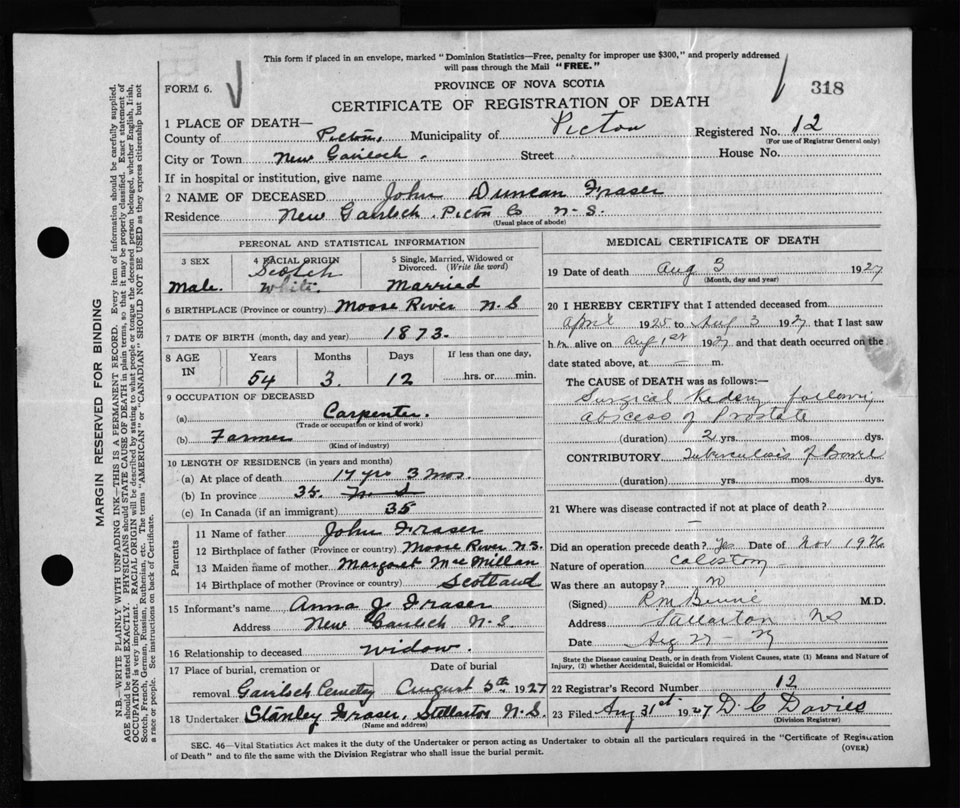 This form if placed in an envelope, marked "Dominion Statistics—Free, penalty for improper use $300," and properly addressed
will pass through the Mail "FREE."
FORM 6.
PROVINCE OF NOVA SCOTIA
318
CERTIFICATE OF REGISTRATION OF DEATH
1 PLACE OF DEATH—
County of Pictou, Municipality of Pictou Registered No. 12
(For use of Registrar General only)
City or Town New Gairloch. Street House No.
If in hospital or institution, give name
2 NAME OF DECEASED John Duncan Fraser
Residence New Gairloch. Pictou Co N-S.
(Usual place of abode)
PERSONAL AND STATISTICAL INFORMATION
3 SEX 4 RACIAL ORIGIN 5 Single, Married, Widowed or Divorced. (Write the word)
Male. Scotch White. Married
6 BIRTHPLACE (Province or country) Moose River N-S
7 DATE OF BIRTH (month, day and year) 1873.
8 AGE IN Years Months Days If less than one day,
54 3. 12 hrs. or min.
9 OCCUPATION OF DECEASED
(a) Carpenter.
(Trade or occupation or kind of work)
(b) Farmer
(Kind of industry)
10 LENGTH OF RESIDENCE (in years and months)
(a) At place of death 17 yrs 3 mos.
(b) In province 35.
(c) In Canada (if an immigrant) 35
Parents
11 Name of father John Fraser
12 Birthplace of father (Province or country) Moose River N.S.
13 Maiden name of mother Margaret McMillan
14 Birthplace of mother (Province or country) Scotland
15 Informant's name Anna J. Fraser
Address New Gairloch N-S.
16 Relationship to deceased widow.
17 Place of burial, cremation or Date of burial
removal Gairloch Cemetery August 5th 1927
18 Undertaker Stanley Fraser, Stellarton N.S.
(Name and address)
MEDICAL CERTIFICATE OF DEATH
19 Date of death Aug 3 1927
(Month, day and year)
20 I HEREBY CERTIFY that I attended deceased from
April 1925 to Aug 3 1927 that I last saw
him alive on Aug 1st 1927 and that death occurred on the
date stated above, at — m.
The CAUSE of DEATH was as follows:—
Surgical Kidney following
abscess of Prostate
(duration) 2 yrs. mos. dys.
CONTRIBUTORY Tuberculosis of Bowel
(duration) yrs. mos. dys.
21 Where was disease contracted if not at place of death?
—
Did an operation precede death? Yes Date of Nov 1926
Nature of operation
Was there an autopsy? no
(Signed) M.D.
Address Stellarton NS
Date Aug 27-27
State the Disease causing Death, or in death from Violent Causes, state (1) Means and Nature of
Injury, (2) whether Accidental, Suicidal or Homicidal.
22 Registrar's Record Number 12
23 Filed Aug 31st 1927 D. C Davies
(Division Registrar)
SEC. 46—Vital Statistics Act makes it the duty of the Undertaker or person acting as Undertaker to obtain all the particulars required in the "Certificate of Registration
of Death" and to file the same with the Division Registrar who shall issue the burial permit.
(OVER)
MARGIN RESERVED FOR BINDING
N.B.—WRITE PLAINLY WITH UNFADING INK—THIS IS A PERMANENT RECORD. Every item of information should be carefully supplied.
AGE should be stated EXACTLY. PHYSICIANS should STATE CAUSE OF DEATH in plain terms, so that it may be properly classified. Exact statement of
OCCUPATION is very important. RACIAL ORIGIN will be described by stating to what people or tongue the deceased person belonged, whether English, Irish,
Scotch, French, German, Russian, Ruthenian, etc. The terms "AMERICAN" or "CANADIAN" SHOULD NOT BE USED as they express citizenship but not
a race or people. See instructions on back of Certificate.